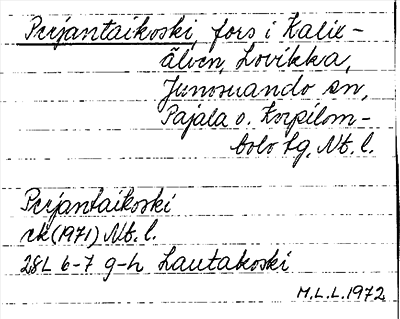 Perjantaikoski, fors i Kalix-
älven, Lovikka,
Junosuando sn,
Pajala o. Korpilom-
bolo tg. Nb. l.
Perjantaikoski
rk (1971) Nb. l.
28L 6-7 g-h Lautakoski
M.L.L. 1972